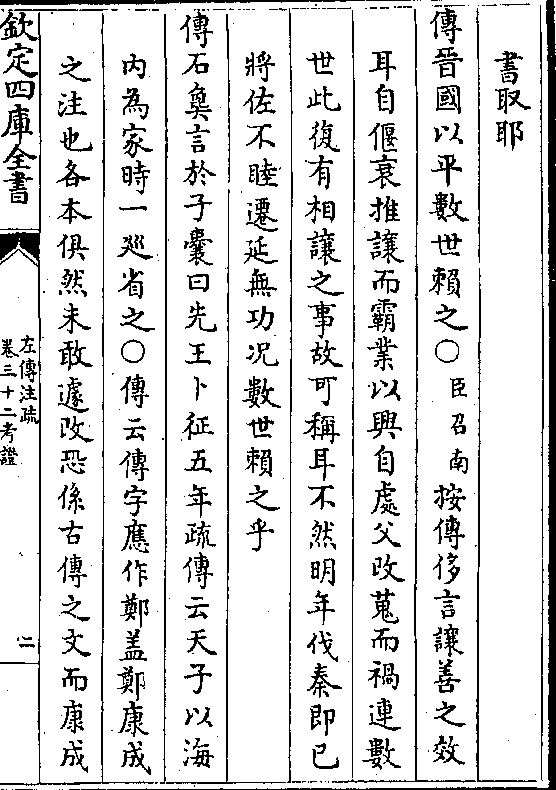 書取耶
傳晉國以平數世賴之○臣召南按傳侈言讓善之效
耳自偃衰推讓而霸業以興自處父改蒐而禍連數
世此復有相讓之事故可稱耳不然明年伐秦即已
將佐不睦遷延無功况數世賴之乎
傳石㚟言於子囊曰先王卜征五年疏傳云天子以海
内為家時一廵省之○傳云傳字應作鄭盖鄭康成
之注也各本俱然未敢遽改恐係古傳之文而康成
欽定四庫全書
左傳注疏
卷三十二考證
二